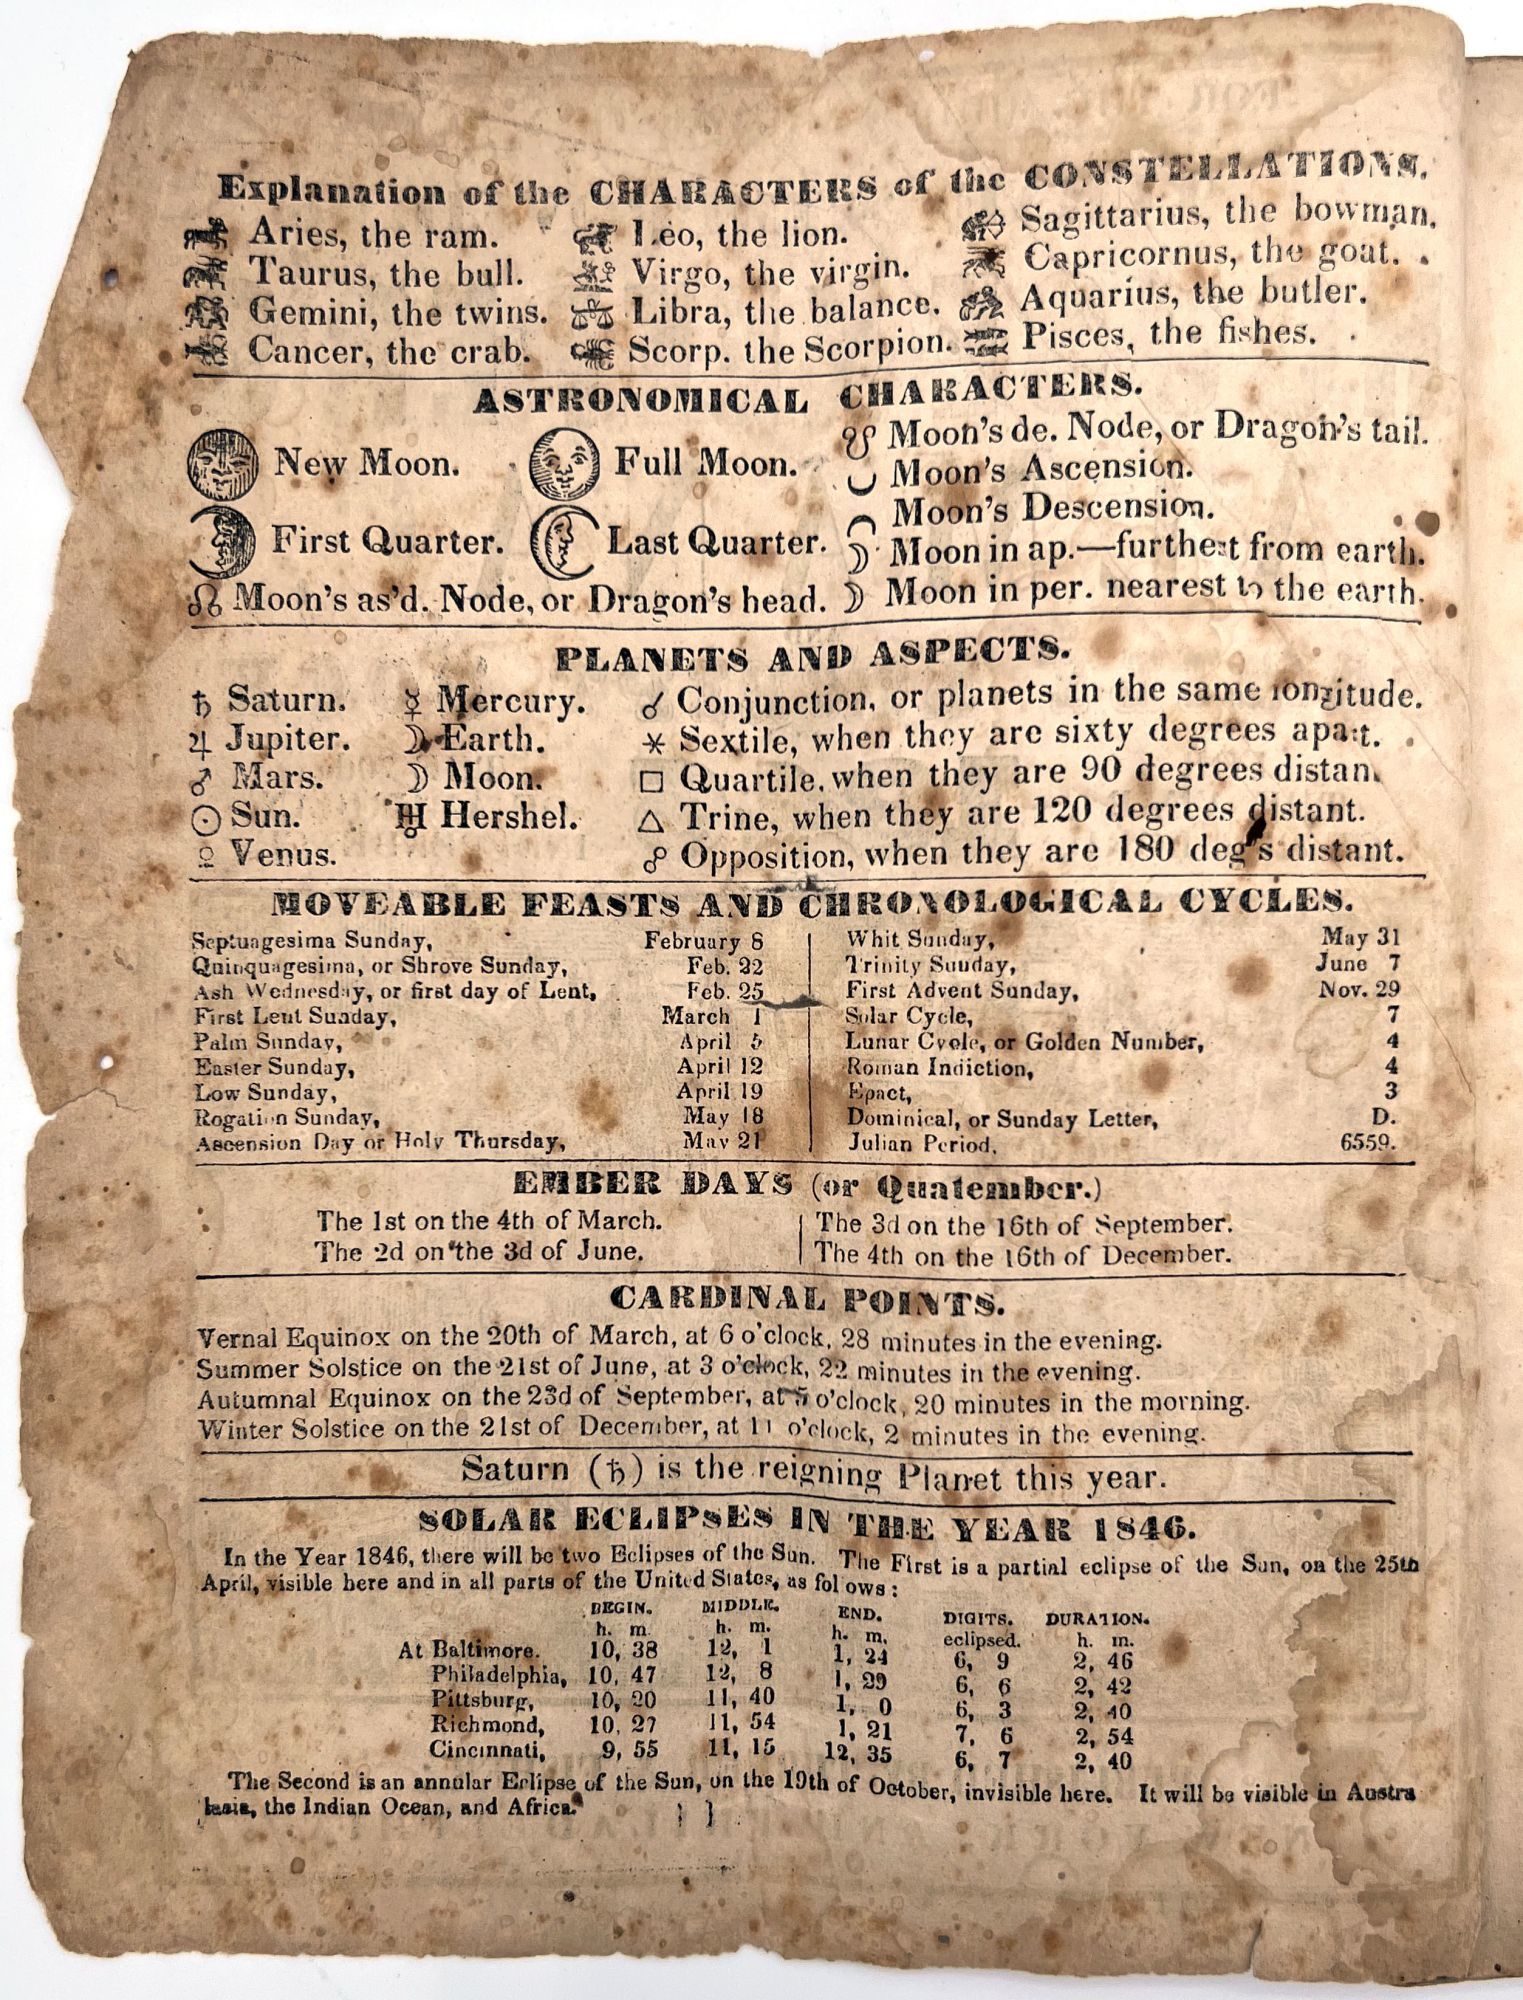 Explanation of the CHARACTERS of the CONSTELLATIONS.
Aries, the ram.
Taurus, the bull.
Gemini, the twins.
Cancer, the crab.
Leo, the lion.
Virgo, the virgin.
Libra, the balance.
Scorp. the Scorpion.
Sagittarius, the bowman.
Capricornus, the goat.
Aquarius, the butler.
Pisces, the fishes.
ASTRONOMICAL CHARACTERS.
New Moon.
Full Moon.
First Quarter.
Last Quarter.
☊ Moon's as'd. Node, or Dragon's head.
☋ Moon's de. Node, or Dragon's tail.
Moon's Ascension.
Moon's Descension.
☽ Moon in ap.—furthest from earth.
☽ Moon in per. nearest to the earth.
PLANETS AND ASPECTS.
♄ Saturn.
♃ Jupiter.
♂ Mars.
☉ Sun.
♀ Venus.
☿ Mercury.
☽ Earth.
☽ Moon.
♅ Hershel.
☌ Conjunction, or planets in the same longitude.
⚹ Sextile, when they are sixty degrees apart.
□ Quartile, when they are 90 degrees distan
△ Trine, when they are 120 degrees distant.
☍ Opposition, when they are 180 deg's distant.
MOVEABLE FEASTS AND CHRONOLOGICAL CYCLES.
Septuagesima Sunday, February 8
Quinquagesima, or Shrove Sunday, Feb. 22
Ash Wednesday, or first day of Lent, Feb. 25
First Lent Sunday, March 1
Palm Sunday, April 5
Easter Sunday, April 12
Low Sunday, April 19
Rogation Sunday, May 18
Ascension Day or Holy Thursday, May 21
Whit Sunday, May 31
Trinity Sunday, June 7
First Advent Sunday, Nov. 29
Solar Cycle, 7
Lunar Cycle, or Golden Number, 4
Roman Indiction, 4
Epact, 3
Dominical, or Sunday Letter, D.
Julian Period, 6559.
EMBER DAYS (or Quatember.)
The 1st on the 4th of March.
The 2d on the 3d of June.
The 3d on the 16th of September.
The 4th on the 16th of December.
CARDINAL POINTS.
Vernal Equinox on the 20th of March, at 6 o'clock, 28 minutes in the evening.
Summer Solstice on the 21st of June, at 3 o'clock, 22 minutes in the evening.
Autumnal Equinox on the 23d of September, at 5 o'clock, 20 minutes in the morning.
Winter Solstice on the 21st of December, at 11 o'clock, 2 minutes in the evening.
Saturn (♄) is the reigning Planet this year.
SOLAR ECLIPSES IN THE YEAR 1846.
In the Year 1846, there will be two Eclipses of the Sun. The First is a partial eclipse of the Sun, on the 25th
April, visible here and in all parts of the United States, as fol ows:
BEGIN. MIDDLE. END. DIGITS. DURATION.
h. m. h. m. h. m. eclipsed. h. m.
At Baltimore. 10, 38 12, 1 1, 24 6, 9 2, 46
Philadelphia, 10, 47 12, 8 1, 29 6, 6 2, 42
Pittsburg, 10, 20 11, 40 1, 0 6, 3 2, 40
Richmond, 10, 27 11, 54 1, 21 7, 6 2, 54
Cincinnati, 9, 55 11, 15 12, 35 6, 7 2, 40
The Second is an annular Eclipse of the Sun, on the 19th of October, invisible here. It will be visible in Austra
lasia, the Indian Ocean, and Africa.